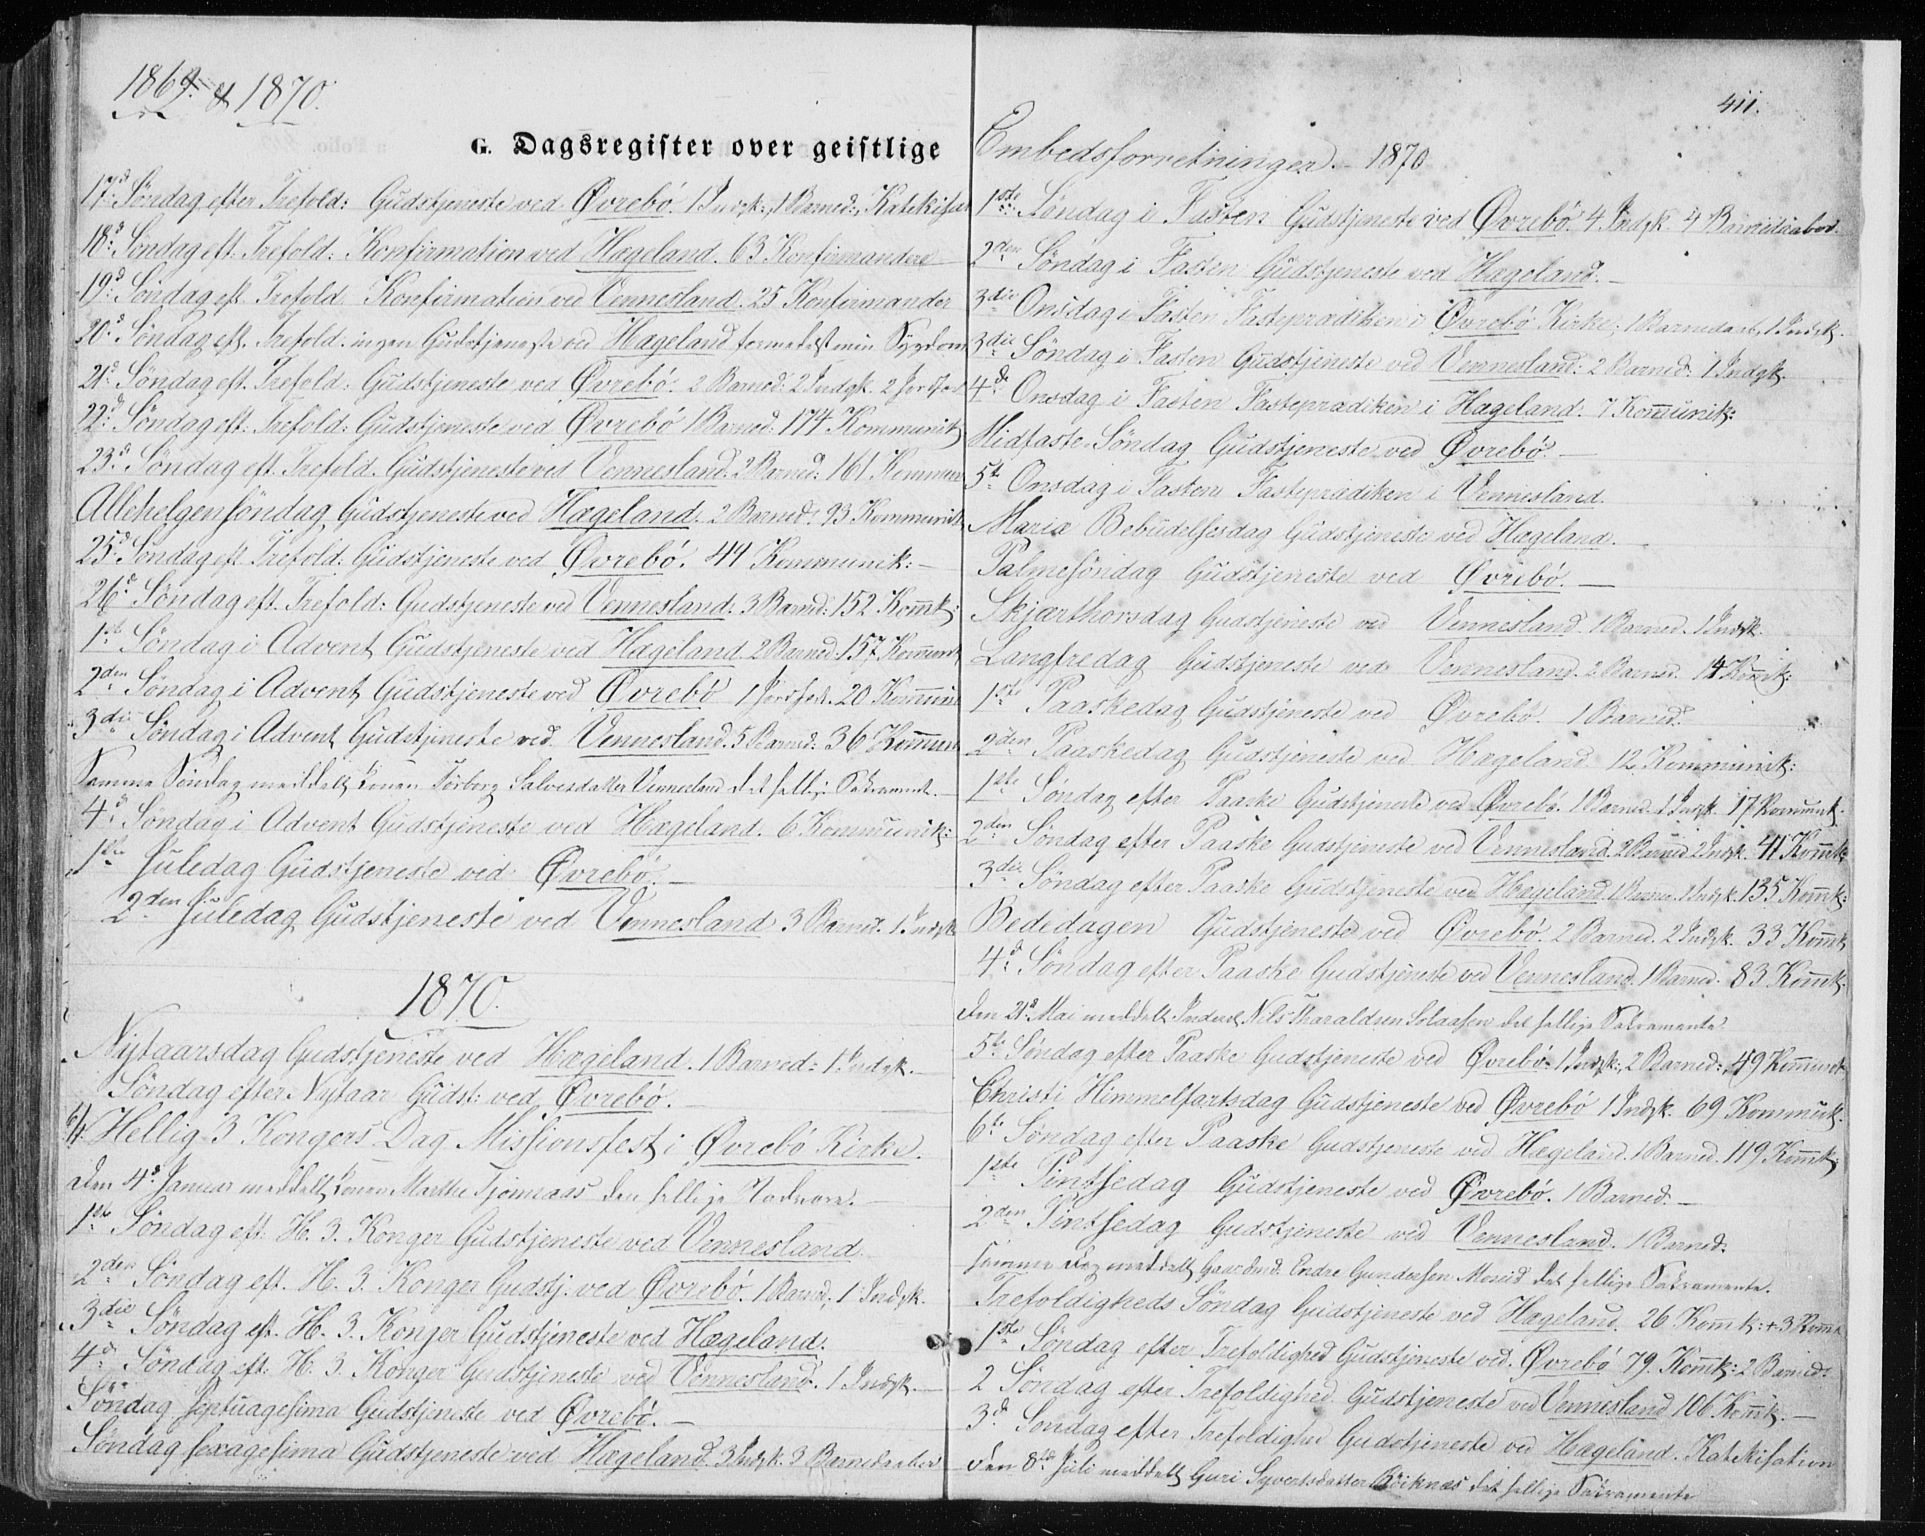 1869 & 1870.
411.
G. Dagsregister over geistlige
Embedsforretninger. 1870
17d Søndag efter Trefold: Gudstjeneste ved Øvrebø. 1 Indgk:, 1 Barned:, Katekisat
18d Søndag eft. Trefold: Konfirmation ved Hægeland. 63 Konfirmander
19d Søndag eft. Trefold. Konfirmation ved Vennesland. 25 Konfirmander
20d Søndag eft. Trefold: ingen Gudstjeneste ved Hægeland formedelst min Sygdom
21d Søndag eft. Trefold: Gudstjeneste ved Øvrebø. 2 Barned: 2 Indgk. 2 Jordf
22d Søndag eft. Trefold: Gudstjeneste ved Øvrebø 1 Barned: 174 Kommunik
23d Søndag eft. Trefold. Gudstjeneste ved Vennesland. 2 Barned: 161 Kommun
Allehelgensøndag Gudstjeneste ved Hægeland. 2 Barned: 93 Kommunik
25d Søndag eft. Trefold: Gudstjeneste ved Øvrebø. 49 Kommunik:
26d Søndag eft. Trefold: Gudstjeneste ved Vennesland: 3 Barned: 152 Komk:
1ste Søndag i Advent Gudstjeneste ved Hægeland 2 Barned: 157 Kommun
2den Søndag i Advent Gudstjeneste ved Øvrebø 1 Jordfest. 20 Kommun
3die Søndag i Advent Gudstjeneste ved Vennesland. 5 Barned: 36 Kommun
Samme Søndag meddelt Konen Torborg Salvesdatter Vennesland det hellige Sakrament.
4d Søndag i Advent Gudstjeneste ved Hægeland. 6 Kommunik:
1ste Juledag Gudstjeneste ved Øvrebø.
2den Juledag Gudstjeneste ved Vennesland 3 Barned. 1 Indgk
1870.
Nytaarsdag Gudstjeneste ved Hægeland. 1 Barned: 1 Indgk.
Søndag efter Nytaar Gudst: ved Øvrebø.
6/1. Hellig 3 Kongers Dag Missionsfest i Øvrebø Kirke.
Den 4d Januar meddelt Konen Marthe den hellige Nadvere.
1ste Søndag eft. H. 3. Konger Gudstjeneste ved Vennesland
2den Søndag eft. H. 3. Konger Gudstj. ved Øvrebø. 1 Barned, 1 Indgk.
3die Søndag eft. H. 3. Konger Gudstjeneste ved Hægeland.
4d Søndag eft. H. 3. Konger Gudstjeneste ved Vennesland. 1 Indgk.
Søndag Septuagesima Gudstjeneste ved Øvrebø.
Søndag Sexagesima Gudstjeneste ved Hægeland 3 Indgk. 3 Barnedaaber
1ste Søndag i Fasten Gudstjeneste ved Øvrebø 4 Indgk. 4 Barnedaabe
2den Søndag i Fasten Gudstjeneste ved Hægeland.
3die Onsdag i Fasten Fasteprædiken i Øvrebø Kirke, 1 Barnedaab, 1 Indgk.
3die Søndag i Fasten Gudstjeneste ved Vennesland: 2 Barned: 1 Indgk.
4de Onsdag i Fasten Fasteprædiken i Hægeland. 7 Kommunik:
Midfaste-Søndag Gudstjeneste ved Øvrebø.
5te Onsdag i Fasten Fasteprædiken i Vennesland.
Mariæ Bebudelsesdag Gudstjeneste ved Hægeland.
Palmesøndag Gudstjeneste ved Øvrebø.
Skjærthorsdag Gudstjeneste ved Vennesland 1 Barned. 1 Indgk.
Langfredag Gudstjeneste ved Vennesland. 2 Barned. 14 Komk:
1ste Paaskedag Gudstjeneste ved Øvrebø. 1 Barned.
2den Paaskedag Gudstjeneste ved Hægeland. 12 Kommunik:
1ste Søndag efter Paaske Gudstjeneste ved Øvrebø. 1 Barned. 1 Indgk. 17 Kommunk.
2den Søndag efter Paaske Gudstjeneste ved Vennesland. 2 Barned. 2 Indgk. 41 Komk
3die Søndag efter Paaske Gudstjeneste ved Hægeland. 1 Barned. 1 Indgk. 135 Komk:
Bededagen Gudstjeneste ved Øvrebø. 2 Barned. 2 Indgk. 33 Komk
4d Søndag efter Paaske Gudstjeneste ved Vennesland. 1 Barned. 83 Komk.
Den 21d Mai meddelt Inderst Nils Tharaldsen det hellige Sakramente.
5te Søndag efter Paaske Gudstjeneste ved Øvrebø. 1 Indgk:, 2 Barned:, 49 Kommunk
Christi Himmelfartsdag Gudstjeneste ved Øvrebø 1 Indgk. 69 Kommuk.
6te Søndag efter Paaske Gudstjeneste ved Hægeland. 1 Barned. 119 Komk:
1ste Pintsedag Gudstjeneste ved Øvrebø. 1 Barned.
2den Pintsedag Gudstjeneste ved Vennesland. 1 Barned.
Samme Dag meddelt Gaardmd. Endre Gundersen det hellige Sakramente.
Trefoldigheds Søndag Gudstjeneste ved Hægeland. 26 Komk: + 3 Komk
1ste Søndag efter Trefoldighed Gudstjeneste ved Øvrebø 79. Komk: 2 Barned:
2 Søndag efter Trefoldighed Gudstjeneste ved Vennesland 106 Komk.
3d Søndag efter Trefoldighed Gudstjeneste ved Hægeland. Katekisation
Den 8de Juli meddelt Guri Syvertsdatter det hellige Sakramente